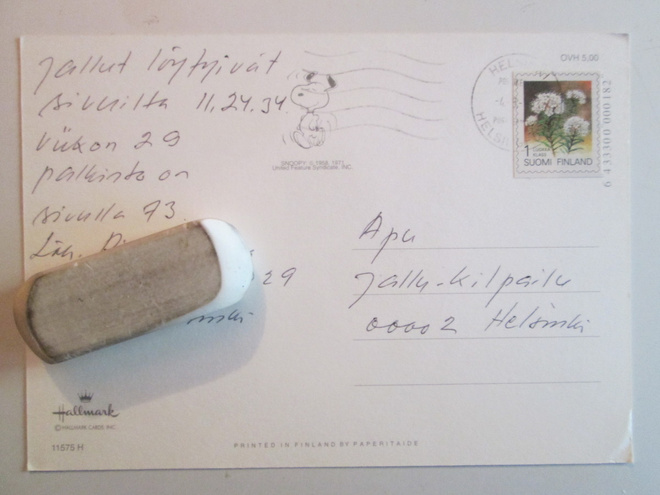 Jallut löytyivät
sivuilta 11, 24, 34.
viikon 29
palkinto on
sivulla 73.
Läh.
29
SNOOPY © 1958, 1971
United Feature Syndicate, INC.
HELSINKI
OVH 5,00
1 LUOKKA KLASS
SUOMI FINLAND
6 433300 000182
Apu
Jallu-kilpailu
00002 Helsinki
Hallmark
© HALLMARK CARDS, INC.
11575 H
PRINTED IN FINLAND BY PAPERITAIDE